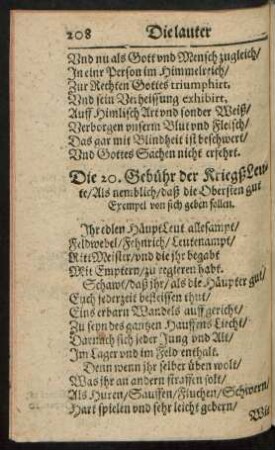 208 Die lauter
Vnd nu als Gott vnd Mensch zugleich/
In einr Person im Himmelreich/
Zur Rechten Gottes triumphirt.
Vnd sein Verheissung exhibirt,
Auff Himlisch Art vnd sonder Weiß/
Verborgen vnserm Blut vnd Fleisch/
Das gar mit Blindheit ist beschwert/
Vnd Gottes Sachen nicht erfehrt.
Die 20. Gebühr der KriegßLeu-
te/Als nemblich/daß die Obersten gut
Exempel von sich geben sollen.
Ihr edlen HäuptLeut allesampt/
Feldwebel/Fehnrich/Leutenampt/
RittMeister/vnd die ihr begabt
Mit Emptern/zu regieren habt.
Schawt/daß ihr/als die Häupter gut/
Euch jederzeit befleissen thut/
Eins erbarn Wandels auffgericht/
Zu seyn des gantzen Hauffens Liecht/
Darnach sich jeder Jung vnd Alt/
Im Lager vnd im Feld enthalt.
Denn wenn ihr selber üben wolt/
Was ihr an andern straffen solt/
Als Huren/Sauffen/Fluchen/Schwern/
Hart spielen vnd sehr leicht gebern/